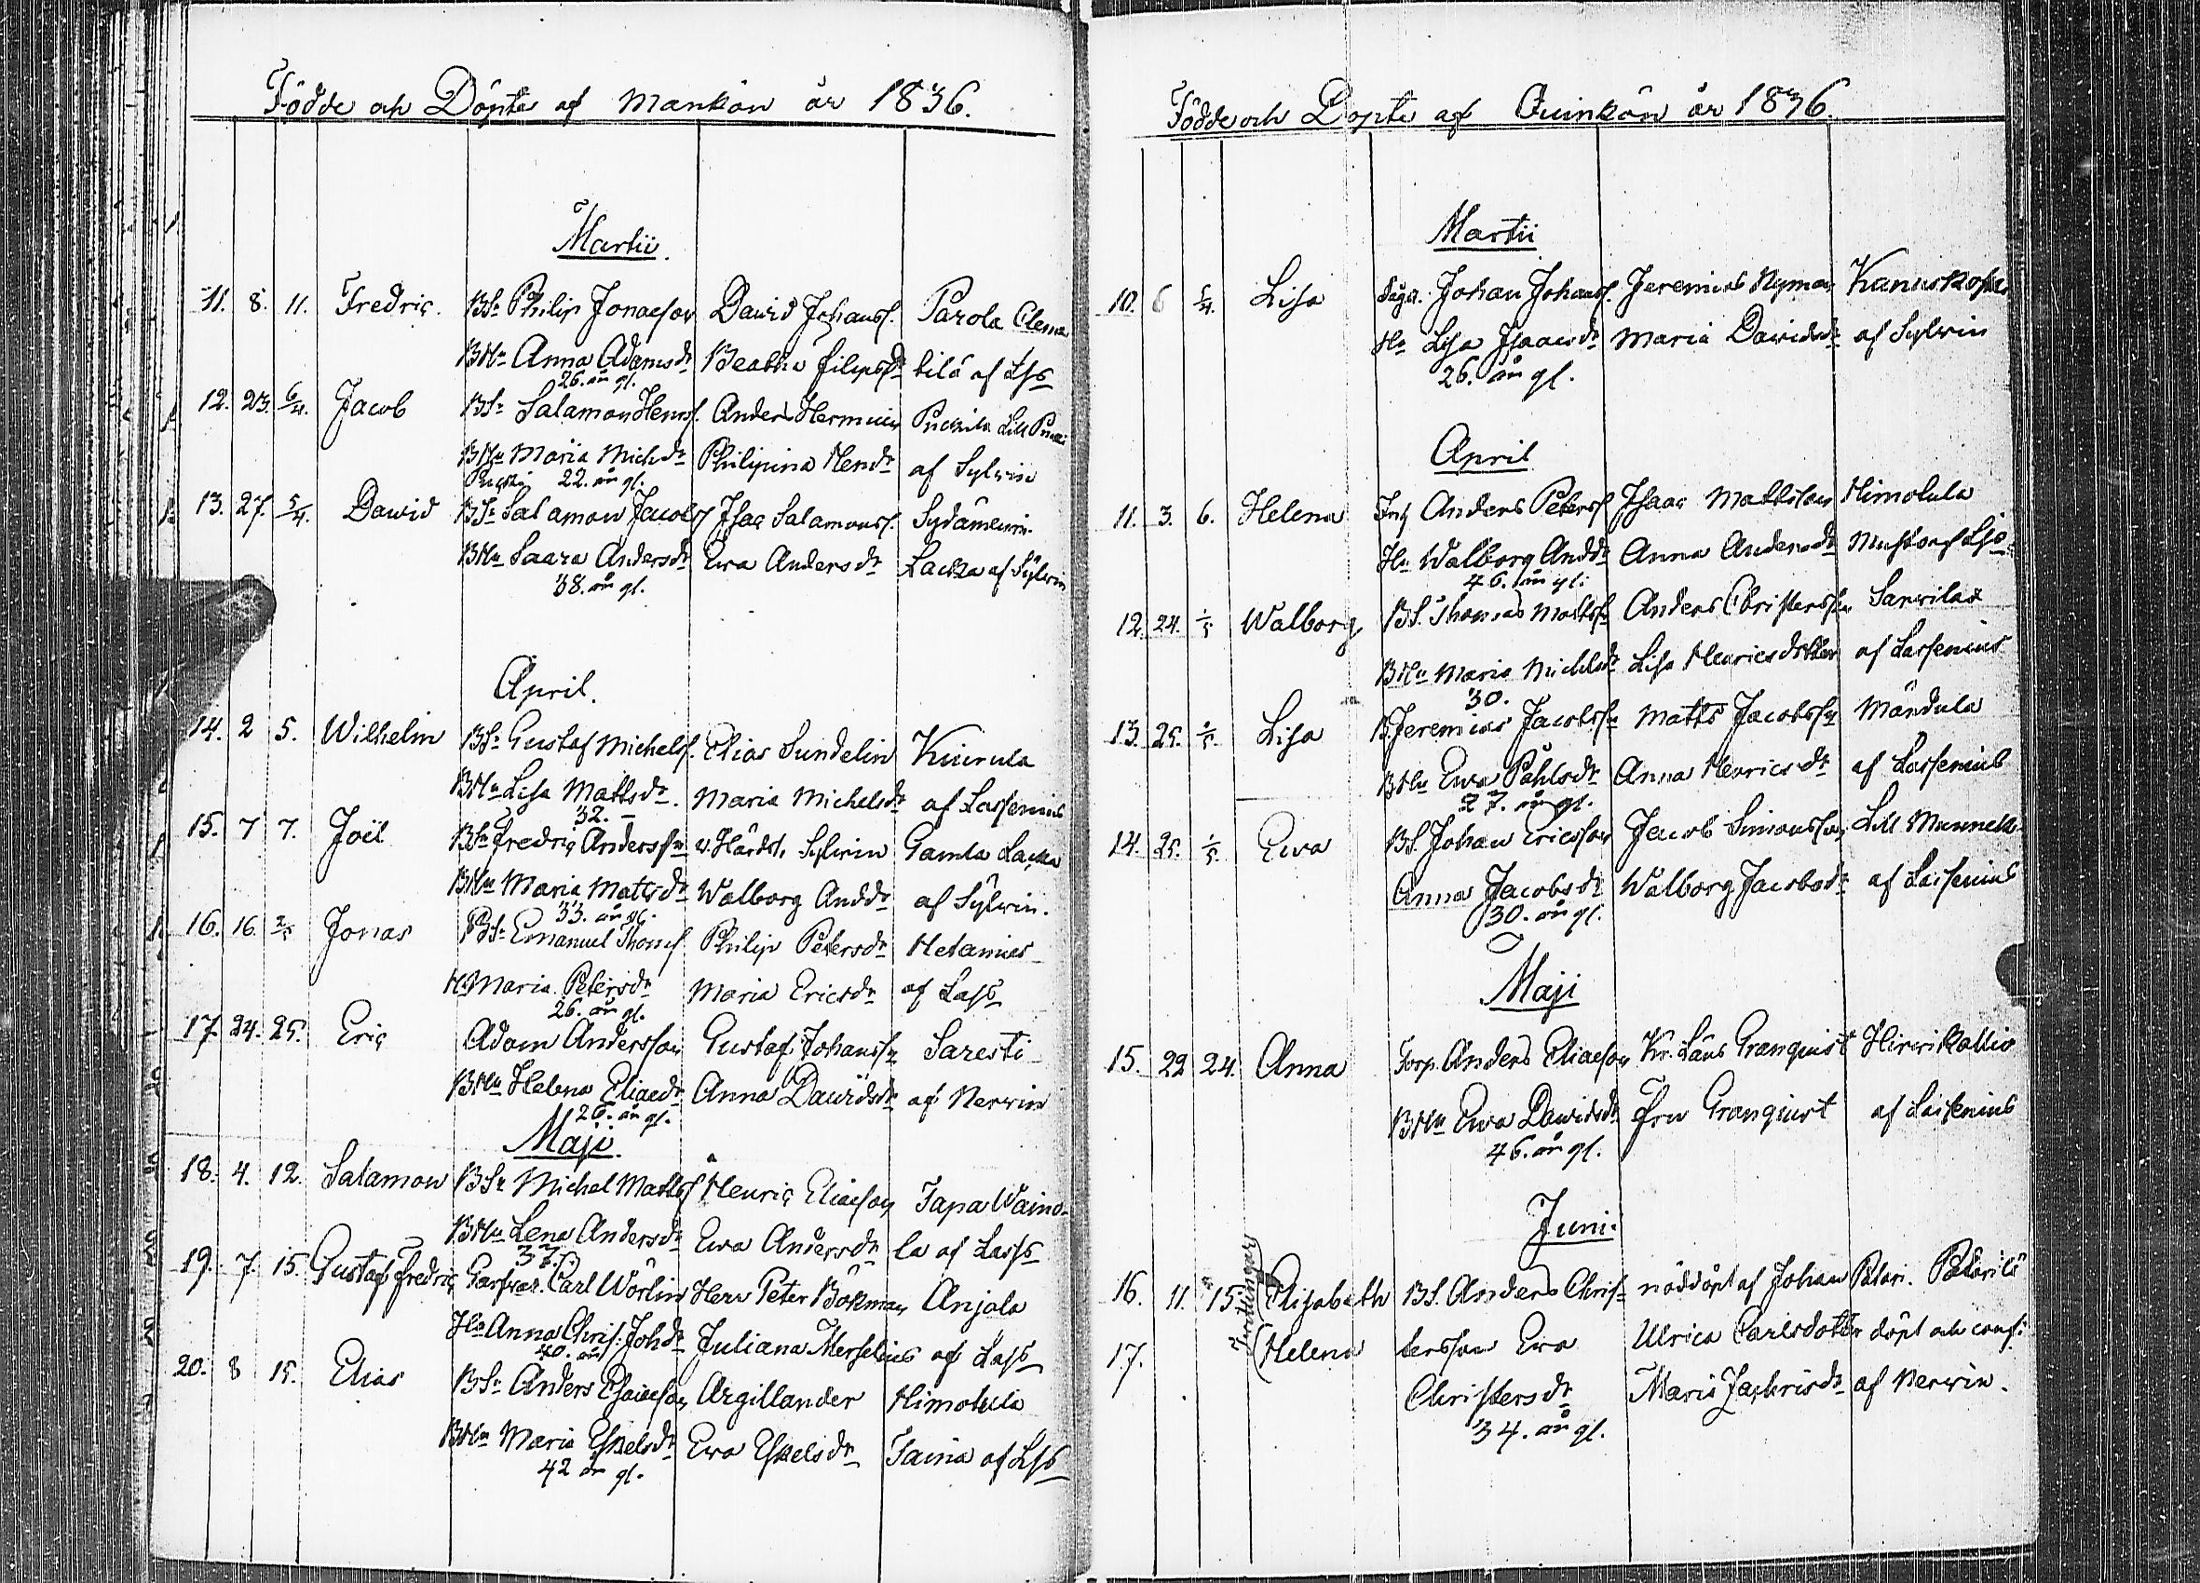 Födde och Döpte af Mankön år 1836.
Martii.
11. 8. 11. Fredric. BS. Philip Jonaeson David Johansf. Parola Clema
BHu Anna Adamsdr Beatha Filipsdr tilä af Lss
26. år gl.
12. 23. 6/4. Jacob BS. Salamon Henrsf. Anders Hermunen Puckila Lill
BHu Maria Michdr Philipina Hendr af Sylvin
22. år gl.
13. 27. 5/4. David BS. Salamon Jacobsf Isac Salamonsf. Sydänmm.
BHu Saara Andersdr Ewa Andersdr Lacka af Sylvin
38. år gl.
April.
14. 2 5. Wilhelm BS. Gustaf Michelsf. Elias Sundelin Kuivula
BHu Lisa Mattsdr. Maria Michelsdr af Lassenius
32.
15. 7 7. Joël BS. Fredric Anderssn v. Härdsh. Sylvin Gamla Lacka
BHu Maria Mattsdr Walborg Anddr af Sylvin.
33. år gl.
16. 16. Jonas BS. Emanuel Thomsf. Philip Petersdr Metamies
Hu Maria Petersdr Maria Ericsdr af Lass
26. år gl.
17. 24. 25. Eric Adam Andersson Gustaf Johanssn Saresti
BHu Helena Eliaedr Anna Davidsdr af Nervin
26. år gl.
Maji.
18. 4. 12. Salamon BSn Michel Mattsf Henric Eliaeson Tapa Waino
BHu Lena Andersdr Ewa Andersdr la af Lass
37.
19. 7. 15. Gustaf Fredric Garfvar. Carl Wörlin Herr Peter Bökman Anjala
Hu Anna Chris. Johdr Juliana Merselius af Lass
40. år
20. 8 15. Elias BS. Anders Esaiaeson Argillander Himotula
BHu Maria Eskelsdr Ewa Eskelsdr Taina af Lss
42 år gl.
Födde och Döpte af Quinkön år 1836.
Martii
10. 6 5/4. Lisa Johan Johansf. Jeremias Nyman Kanuskoski
Hu Lisa Isaacsdr Maria Davidsdr af Sylvin
26. år gl.
April
11. 3. 6. Helena Inh Anders Petersf Isaac Mattson Himotula
Hu Walborg Anddr Anna Andersdr af Lss
46. år gl.
12. 24. 1/5 Walborg BS. Thomas Mattsf Anders Christerssn Sarvilax
BHu Maria Michelsdr Lisa Henricsdotter af Lassenius
30.
13. 25. Lisa B. Jeremias Jacobssn Matts Jacobssn Mändula
BHu Ewa Påhlsdr Anna Henricsdr af Lassenius
27. år gl.
14. 25. 1/5. Ewa BS. Johan Ericsson Jacob Simonsson Lill Munnela
Anna Jacobsdr Walborg Jacobsdr af Lassenius
30. år gl.
Maji
15. 22 24. Anna Torp. Anders Eliaeson Kr. Läns Granquist Hirvikallio
BHu Ewa Davidsdr Fru Granquist af Lassenius
46. år gl.
Juni.
Tvillingar
16. 11. 15. Elisabeth BS. Anders Chris- nöddöpt af Johan Palari. Palarilä
17. Helena tersson Ewa Ulrica Carlsdotter döpt och conf:
Christersdr Maria Zachrisdr af Nervin.
34. år gl.